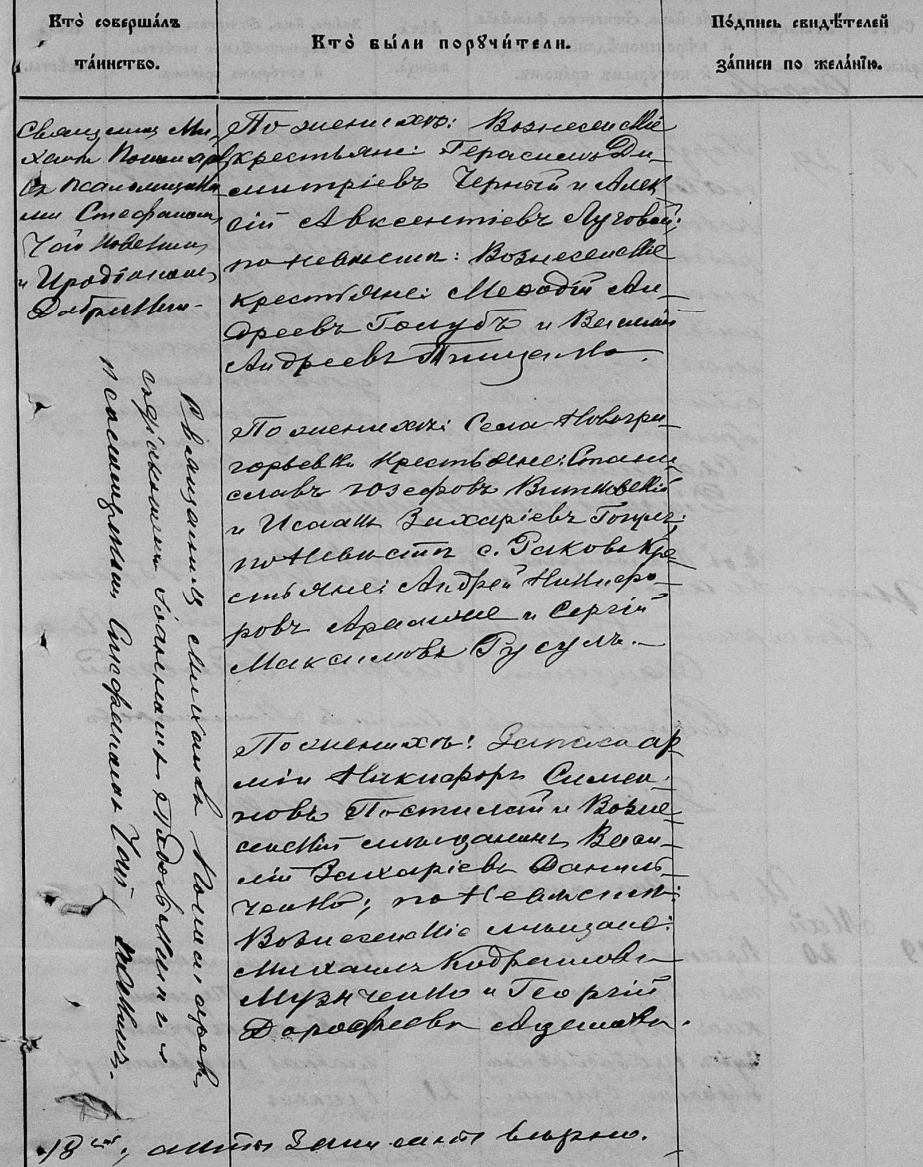 Кто̀ соверша́лъ
та́инство.
Кто̀ бы́ли порꙋчи́тели.
По́дпись свидѣ́телей
за́писи по жела́нїю.
Священникъ Ми-
хаилъ
съ псаломщика-
ми Стефаномъ
Чайковскимъ
и Иродіономъ
По женихѣ: Вознесенскіе
крестьяне: Герасимъ Ди-
митріевъ Черный и Алек
сій Авксентіевъ Луговой;
по невѣстѣ: Вознесенскіе
крестьяне: Меѳодій Ан-
дреевъ Голубъ и Василій
Андреевъ
Священникъ Михаилъ
съ діакономъ Іоанномъ и
псаломщикомъ Стефаномъ Чайковскимъ.
По женихѣ: Села Новогри-
горьевки крестьяне: Стани
славъ Юзефовъ Витковскій
и Исаакъ Захаріевъ
по невѣстѣ с. Раково кре
стьяне: Андрей Никифо-
ровъ и Сергій
Максимовъ Русулъ.
По женихѣ: Запаса ар
міи Никифоръ Симео-
новъ и Возне
сенскій мѣщанинъ Васи-
лій Захаріевъ Даниль
ченко; по невѣстѣ:
Вознесенскіе мѣщане:
Михаилъ
и Георгій
Дороѳеевъ
18ᵐ, актъ записанъ вѣрно.